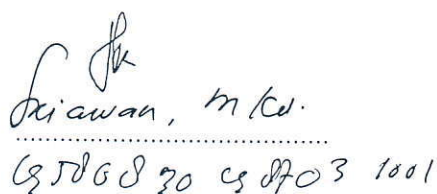 Sriawan, M Kes.
19580830 198703 1001